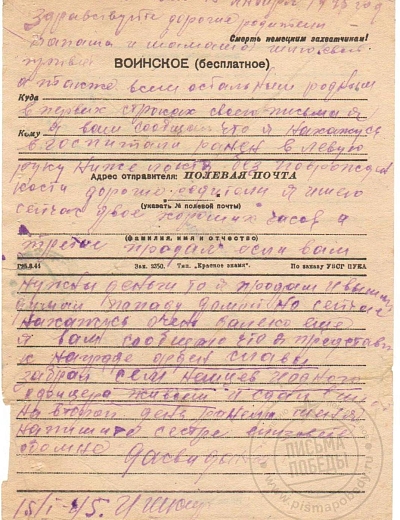 15 января 1945 год
Здравствуйте дорогие родители
Папаша и мамаша
Смерть немецким захватчикам!
ВОИНСКОЕ (бесплатное)
а также всем остальным родным
Куда
в первых строках своего письма я
Кому
Я вам сообщаю что я нахожусь
в госпитали ранен в левую
руку ниже локтя без
Адрес отправителя: ПОЛЕВАЯ ПОЧТА
кости дорогие родители я имею
(указать № полевой почты)
сейчас двое хороших часов а
третие продал если вам
(фамилия, имя и отчество)
Зак. 2350. Тип. "Красное знамя".
По заказу
нужны деньги то я продам и вышлю
домой но сейчас
нахожусь очень далеко еще
я вам сообщаю что я представлен
к награде орден славы
забрал сем немцев и одного
офицера живыми и сдал в
на второй день ранило меня
напишите сестре
досвидания
15/I-45.
ПИСЬМА
ПОБЕДЫ
www.pismapobedy.ru